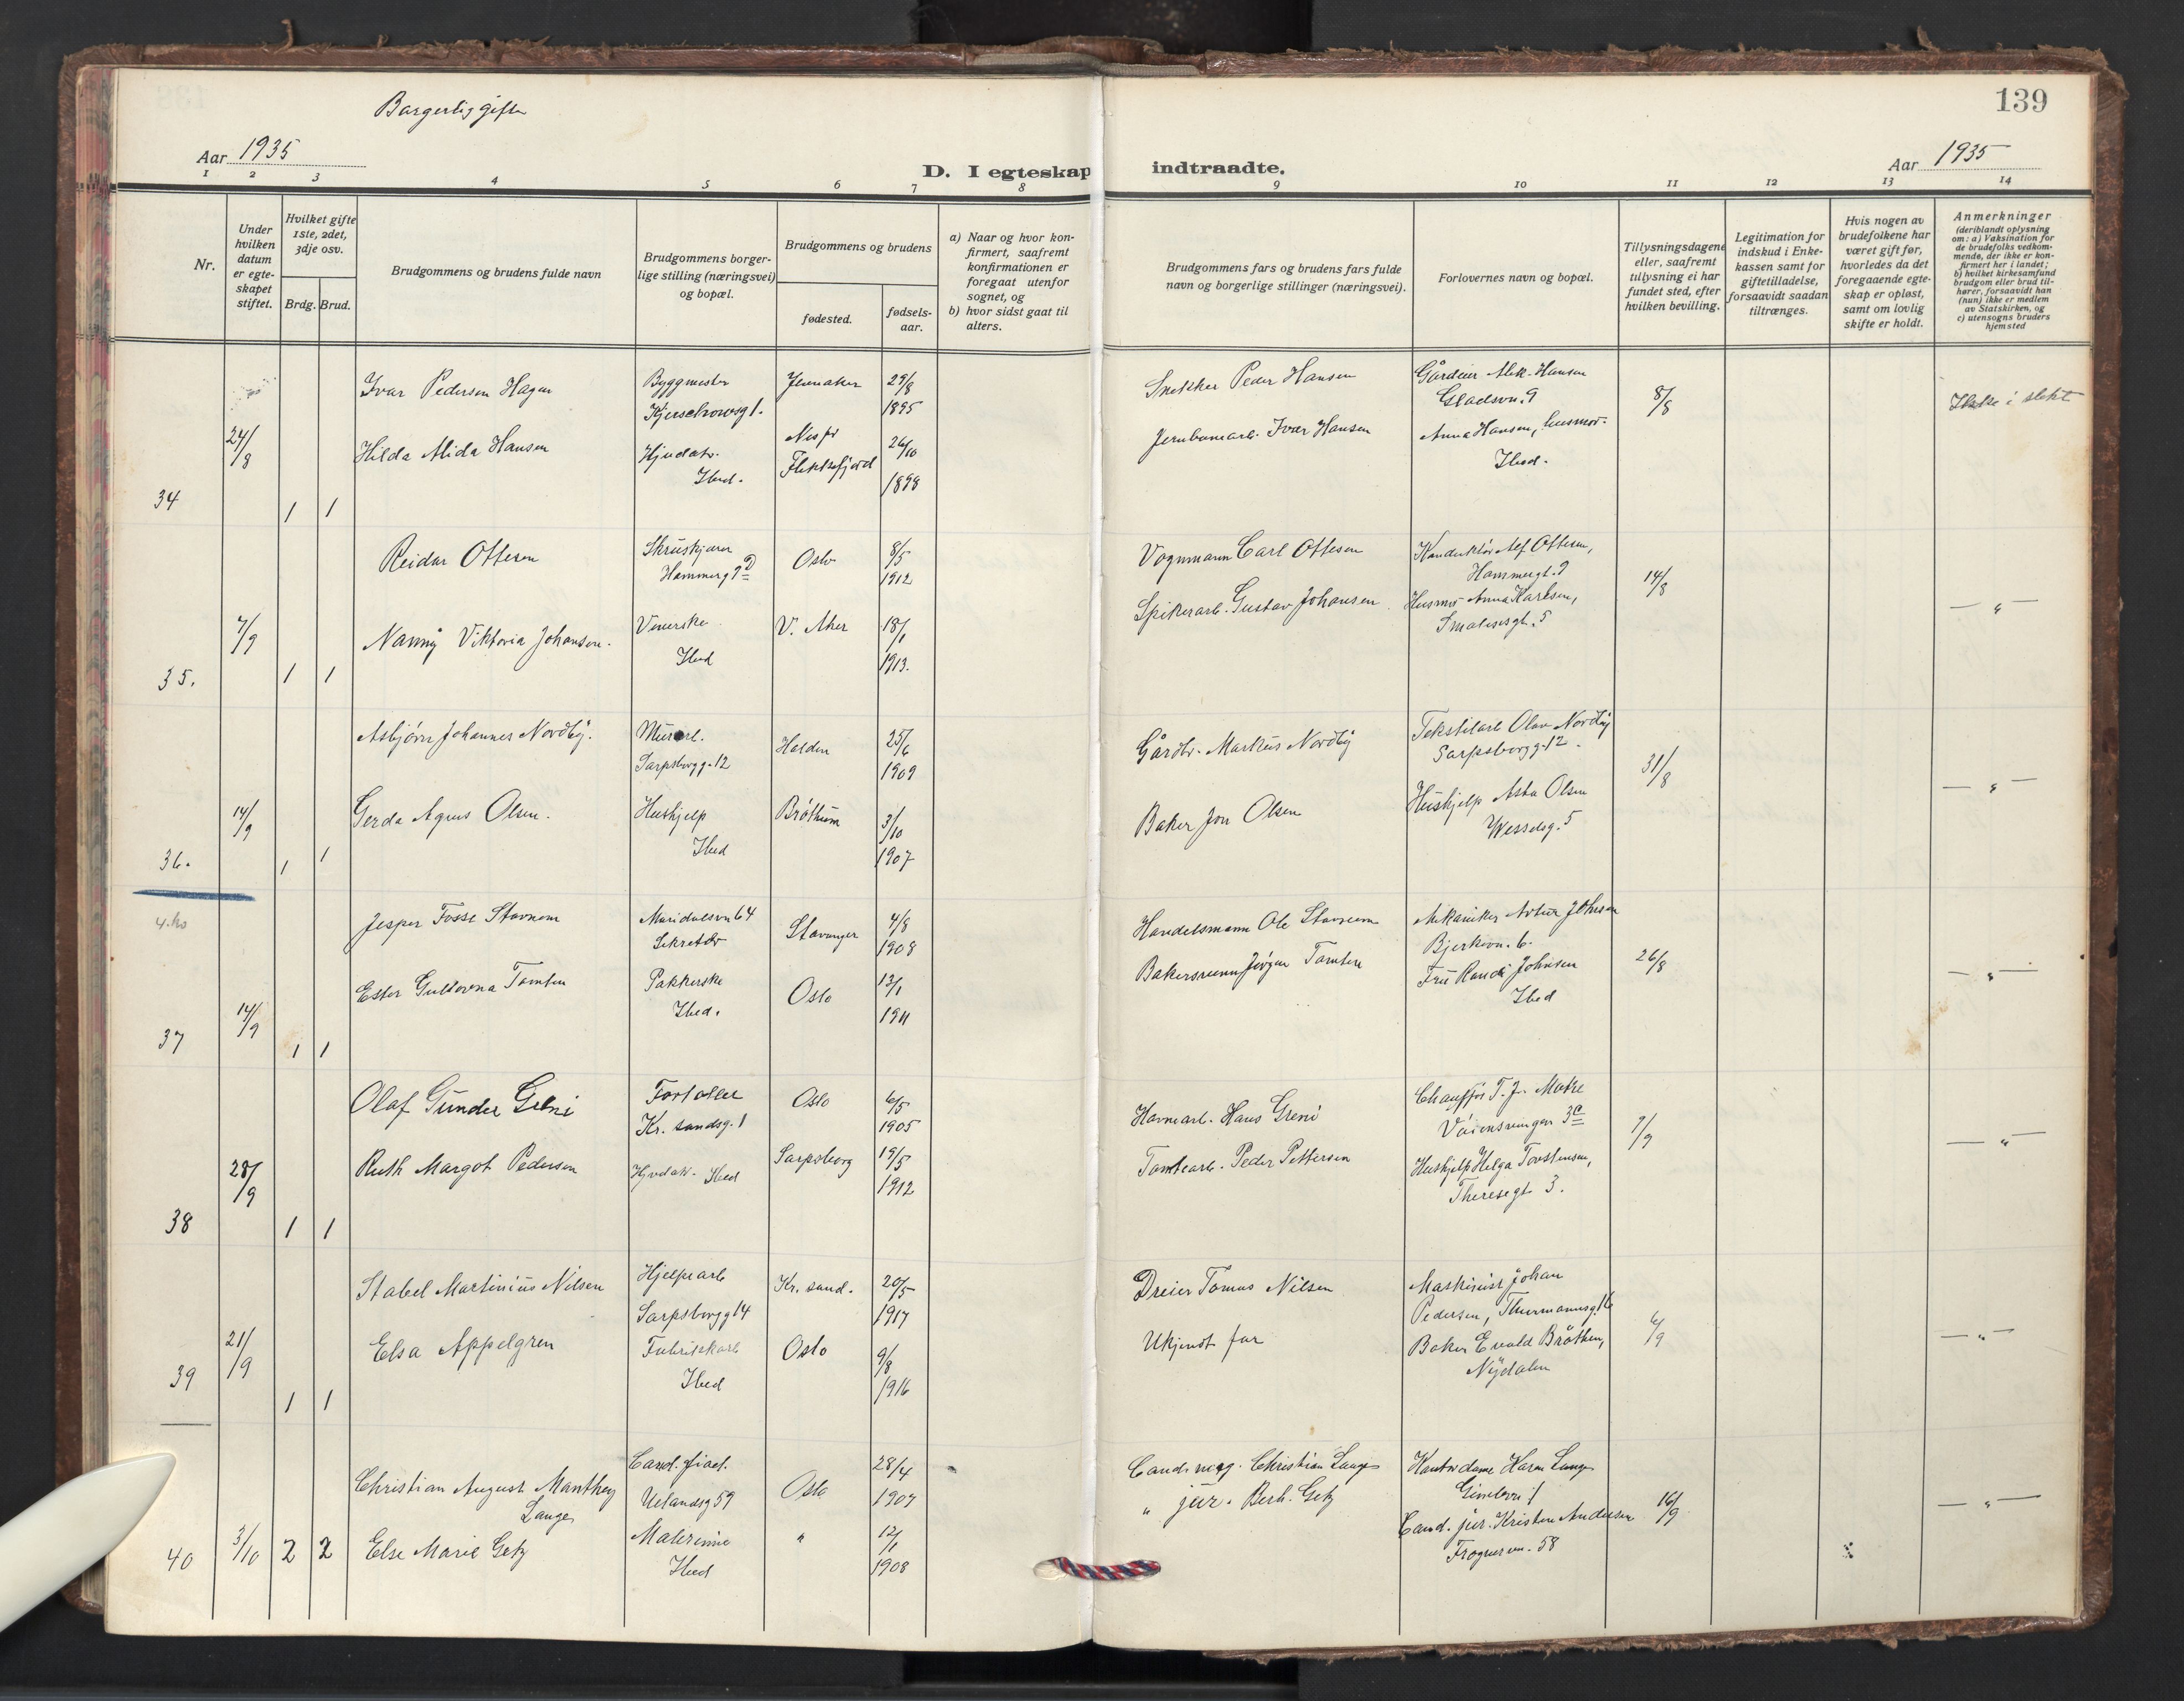 Borgerlig gifte
139
Aar 1935
D. I egteskap indtraadte.
Aar 1935
1 2 3 4 5 6 7 8 9 10 11 12 13 14
Nr.
Under hvilken datum er egteskapet stiftet.
Hvilket gifte 1ste, 2det, 3dje osv.
Brdg. Brud.
Brudgommens og brudens fulde navn
Brudgommens borgerlige stilling (næringsvei) og bopæl.
Brudgommens og brudens
fødested.
fødsels-aar.
a) Naar og hvor konfirmert, saafremt konfirmationen er foregaat utenfor sognet, og
b) hvor sidst gaat til alters.
Brudgommens fars og brudens fars fulde navn og borgerlige stillinger (næringsvei).
Forlovernes navn og bopæl.
Tillysningsdagene eller, saafremt tillysning ei har fundet sted, efter hvilken bevilling.
Legitimation for indskud i Enkekassen samt for giftetilladelse, forsaavidt saadan tiltrænges.
Hvis nogen av brudefolkene har været gift før, hvorledes da det foregaaende egteskap er opløst, samt om lovlig skifte er holdt.
Anmerkninger (deriblandt oplysning om: a) Vaksination for de brudefolks vedkommende, der ikke er konfirmert her i landet; b) hvilket kirkesamfund brudgom eller brud tilhører, forsaavidt han (hun) ikke er medlem av Statskirken, og c) utensogns bruders hjemsted
34
24/8
1 1
Ivar Pedersen Hagen
Byggmester
Kjerschowsg 1.
Jevnaker
29/8
1895
Snekker Peder Hansen
Gårdeier Alek. Hansen
Gladsvn. 9
8/8
Ikke i slekt
Hilda Alida Hansen
Ibid.
Flekkefjord
26/10
1898
Jernbanearb. Ivar Hansen
Anna Hansen, husmor.
Ibid.
35.
7/9
1 1
Reidar Ottesen
Hammerg 9 D
Oslo
8/5
1912
Vognmann Carl Ottesen
Konduktør Alf Ottesen,
Hammergt. 9
14/8
— " —
Nanny Viktoria Johansen.
Veverske
Ibid
V. Aker
18/1
1913.
Spikerarb. Gustav Johansen.
Husmor Anna Karlsen,
Smalensgt. 5
36.
14/9
1 1
Asbjørn Johannes Nordby.
Murarb.
Sarpsborgg. 12
Halden
25/6
1909
Gårdbr. Markus Nordby
Tekstilarb Olav Nordby
Sarpsborgg. 12.
31/8
— " —
Gerda Agnes Olsen.
Hushjelp
Ibid
Brøttum
3/10
1907
Baker Jon Olsen
Hushjelp Asta Olsen
Wesselsg. 5
37
14/9
1 1
Jesper Fosse Stavnem
Maridalsvn 64
Sekretær
Stavanger
4/8
1908
Handelsmann Ole Stavnem
Mekaniker Artur Johnsen
Bjerkevn. 6.
26/8
— " —
Pakkerske
Ibid.
Oslo
13/1
1911
Fru Randi Johnsen
Ibid
38
28/9
1 1
Olaf Gunder Greni
Kr. sandsg. 1
Oslo
6/5
1905
Havnearb. Hans Greni
Chauffør T. J. Moke
3 C
7/9
— " —
Ruth Margot Pedersen
Ibid
Sarpsborg
19/5
1912
Tomtearb. Peder Pettersen
Hushjelp Helga Torstensen,
Theresegt 3.
39
21/9
1 1
Stabel Martinius Nilsen
Hjelpearb
Sarpsborgg 14
Kr. sand.
20/5
1917
Dreier Tomas Nilsen
Maskinist Johan
Pedersen, Thurmannsg. 16
6/9
— " —
Elsa Appelgren
Fabrikkarb
Ibid
Oslo
9/8
1916
Ukjendt far
Baker Evald Bråthen,
Nydalen
40
3/10
2 2
Christian August Manthey
Lange
Uelandsg 59
Oslo
28/4
1907
Christian Lange
Kontordame Karen Lange
Gimlevn 1
16/9
— " —
Else Marie Getz
Malerinne
Ibid
"
12/1
1908
" jur. Berh. Getz
Cand. jur. Kristen Andersen
Frognervn. 58